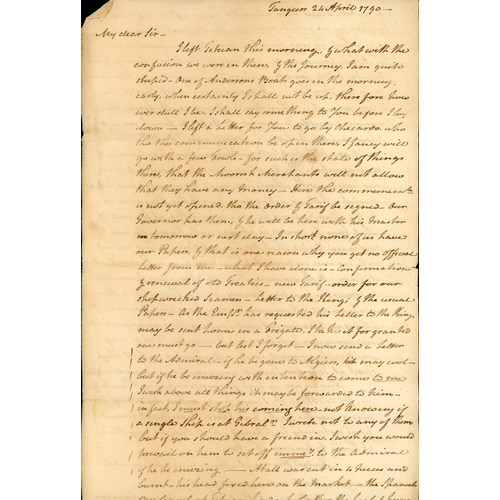 Tangiers 24 April 1790 -
My dear Sir -
I left Tetuan this morning, & what with the
confusion we were in there, & the Journey, I am quite
stupid - One of Andersons Boats goes in the morning
early, when certainly I shall not be up, therefore how
ever dull I be, I shall say something to You before I lay
down - I left a letter for You to go by Checarda, who
tho the communication be open there, I fancy will
go with a few Fowls - for such is the state of things
there, that the Moorish Merchants will not allow
that they have any money - Here the communicatn
is not yet opened, tho the order & Tarif be signed - Our
Governor has them, & he will be here with his Master
tomorrow or next day - In short none of us have
our Papers, & that is one reason why you get no official
Letter from me - what I have done is - Confirmation
& renewal of old Treaties - new Tarif - order for our
shipwrecked Seamen - Letter to the King; & the usual
Papers - As the Empr. has requested his Letter to the King
may be sent home in a Frigate, I take it for granted
one must go - but lest I forget - I now send a letter
to the Admiral - if he be gone to Algiers, it may cool -
but if he be cruizing with intention to come to me
I wish above all things it may be forwarded to him -
in fact, I must stop his coming here - not knowing if
a single Ship is at Gibralr. I write not to any of them
but if you should have a friend in, I wish you would
prevail on him to set off immy. to the Admiral
if he be cruizing - Attall was cut in 4 pieces and
burnt - his head fixed here on the market - the Spanish